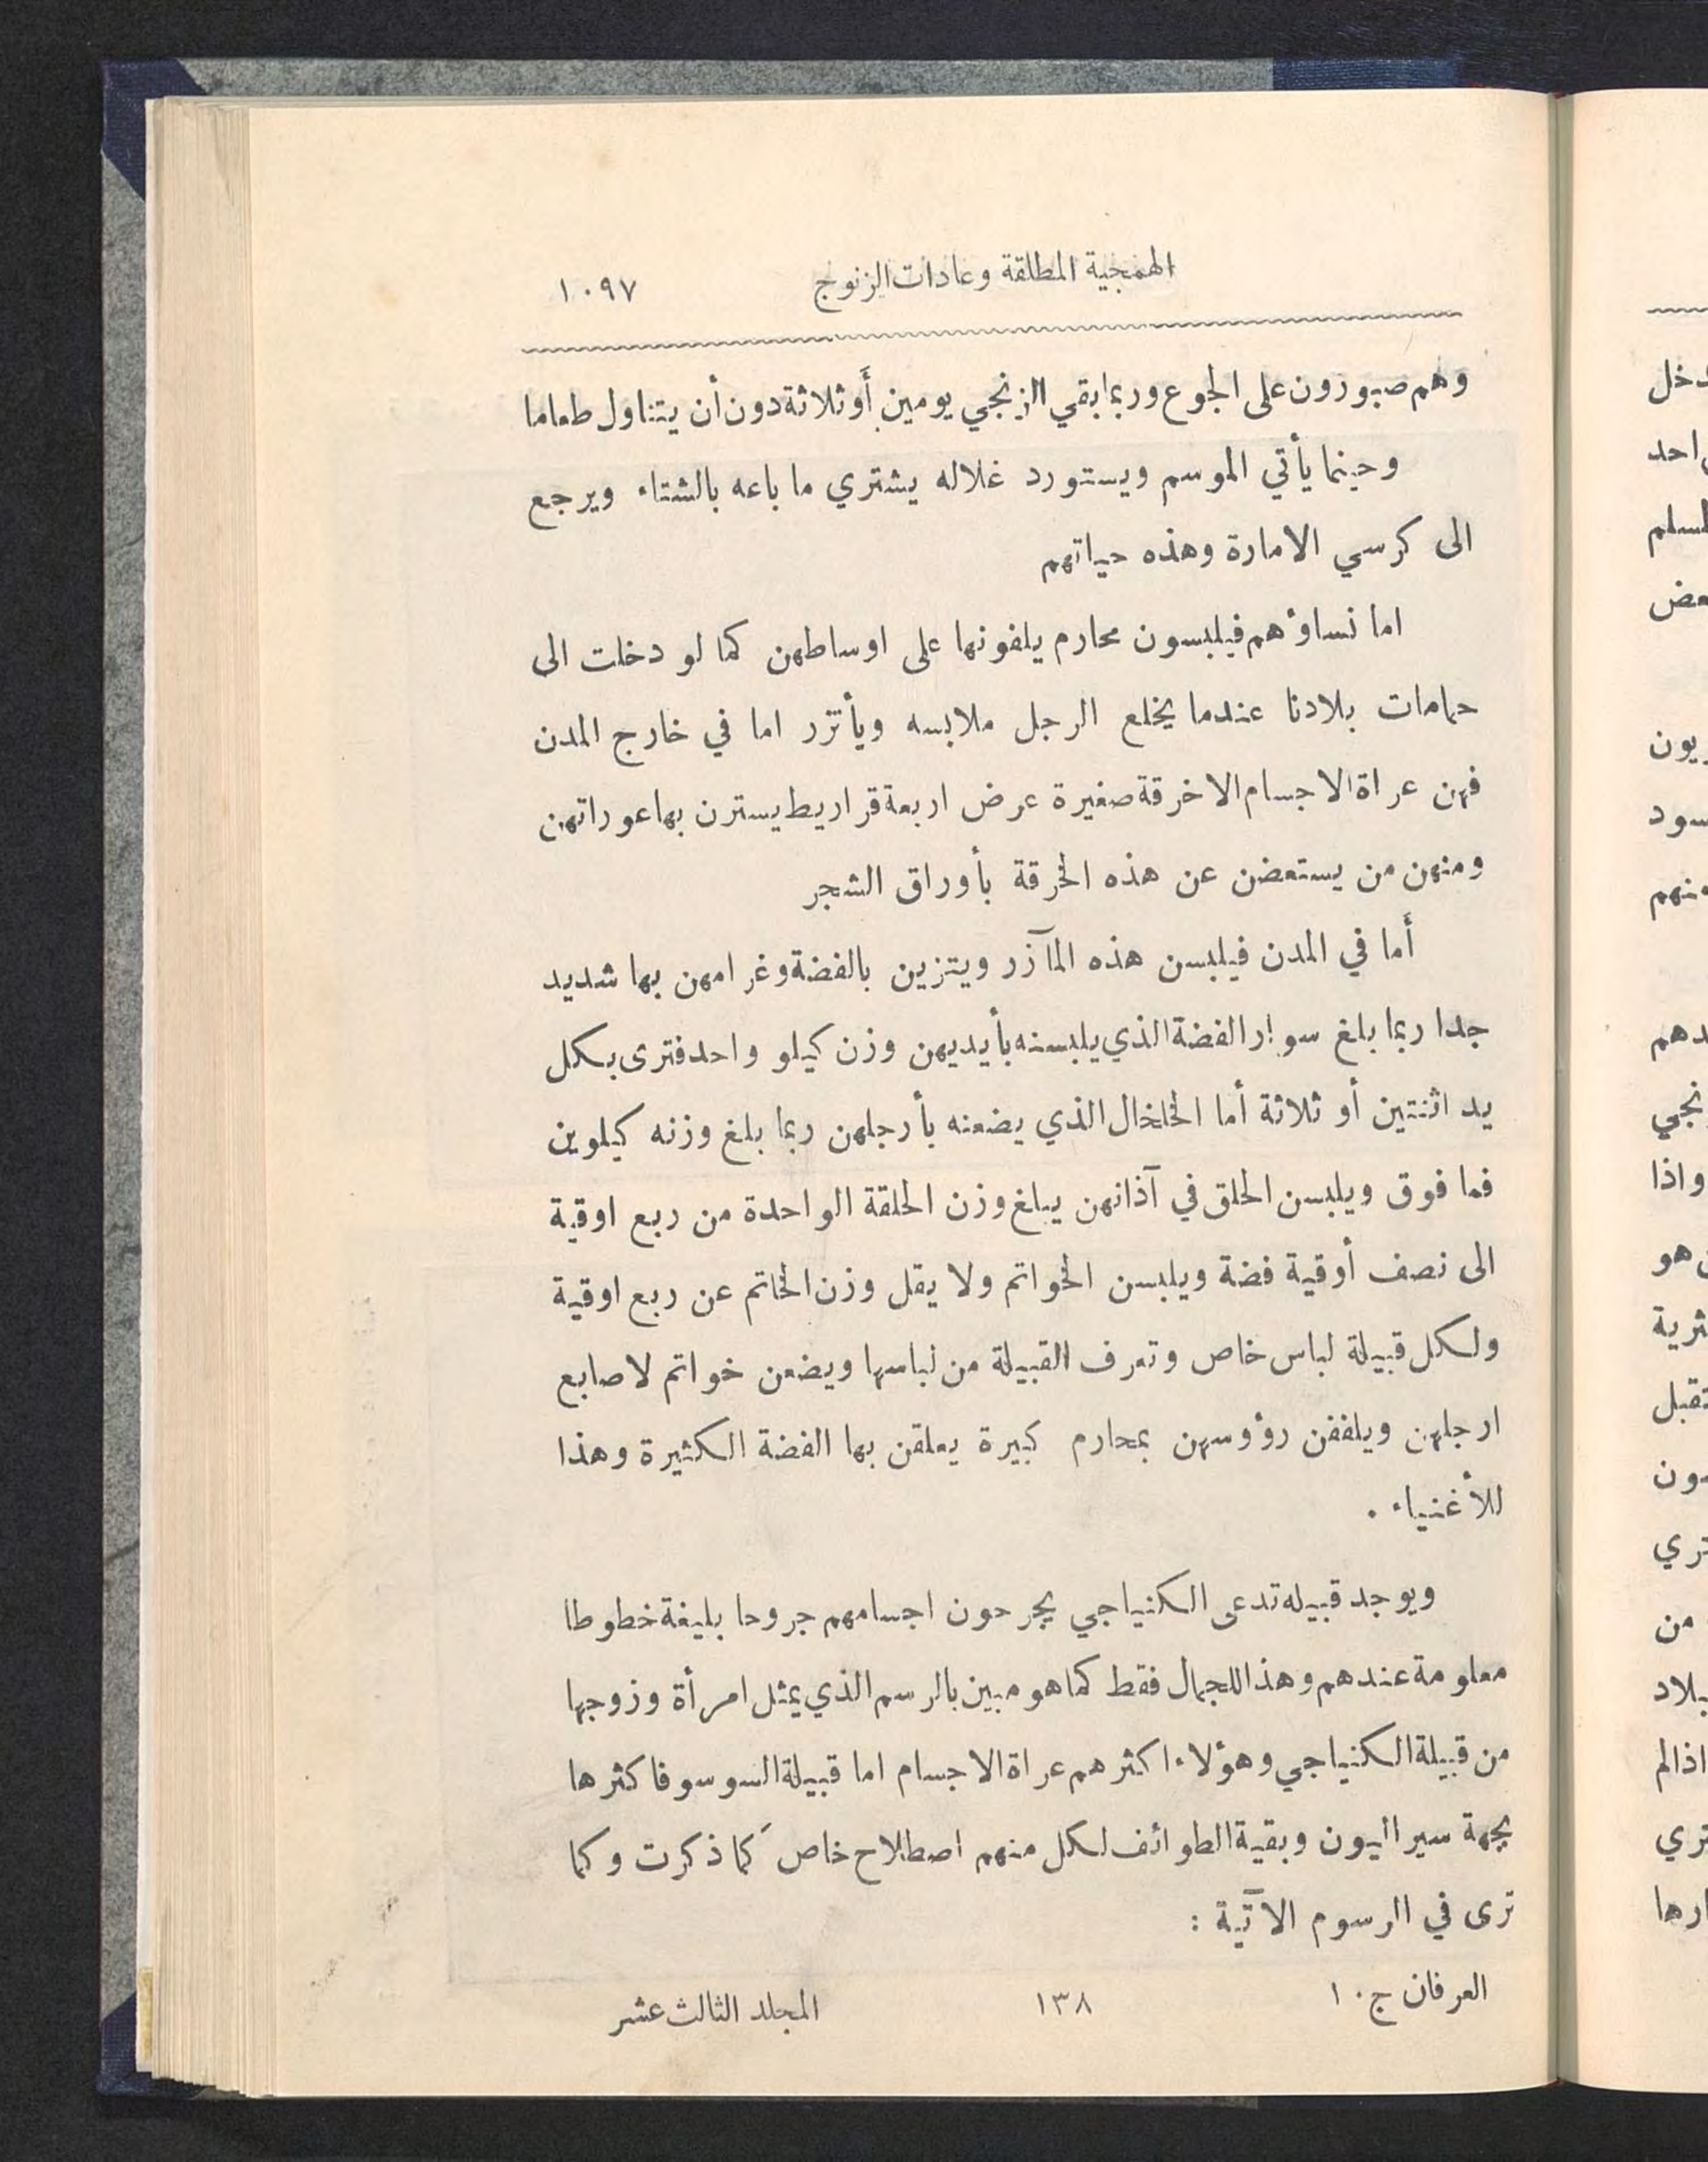 الهمجية المطلقة وعادات الزنوج ١٠٩٧
وهم صبورون على الجوع وربما بقي الزنجي يومين أو ثلاثة دون أن يتناول طعاما
وحينما يأتي الموسم ويستورد غلاله يشتري ما باعه بالشتاء ويرجع
الى كرسي الامارة وهذه حياتهم
اما نساؤهم فيلبسون محارم يلفونها على اوساطهن كما لو دخلت الى
حمامات بلادنا عندما يخلع الرجل ملابسه ويأتزر اما في خارج المدن
فهن عراة الاجسام الا خرقة صغيرة عرض اربعة قراريط يسترن بها عوراتهن
ومنهن من يستعضن عن هذه الخرقة بأوراق الشجر
أما في المدن فيلبسن هذه المآزر ويتزين بالفضة وغرامهن بها شديد
جدا ربما بلغ سوار الفضة الذي يلبسنه بأيديهن وزن كيلو واحد فترى بكل
يد اثنتين أو ثلاثة أما الخلخال الذي يضعنه بأرجلهن ربما بلغ وزنه كيلوين
فما فوق ويلبسن الحلق في آذانهن يبلغ وزن الحلقة الواحدة من ربع اوقية
الى نصف أوقية فضة ويلبسن الخواتم ولا يقل وزن الخاتم عن ربع اوقية
ولكل قبيلة لباس خاص وتعرف القبيلة من لباسها ويضعن خواتم لاصابع
ارجلهن ويلففن رؤوسهن بمحارم كبيرة يعلقن بها الفضة الكثيرة وهذا
للأغنياء .
ويوجد قبيله تدعى الكنياجي يجرحون اجسامهم جروحا بليغة خطوطا
معلومة عندهم وهذا للجمال فقط كما هو مبين بالرسم الذي يمثل امرأة وزوجها
من قبيلة الكنياجي وهؤلاء اكثرهم عراة الاجسام اما قبيلة السوسو فاكثرها
بجهة سيراليون وبقية الطوائف لكل منهم اصطلاح خاص كما ذكرت وكما
ترى في الرسوم الآتية :
العرفان ج ١٠ ١٣٨ المجلد الثالث عشر